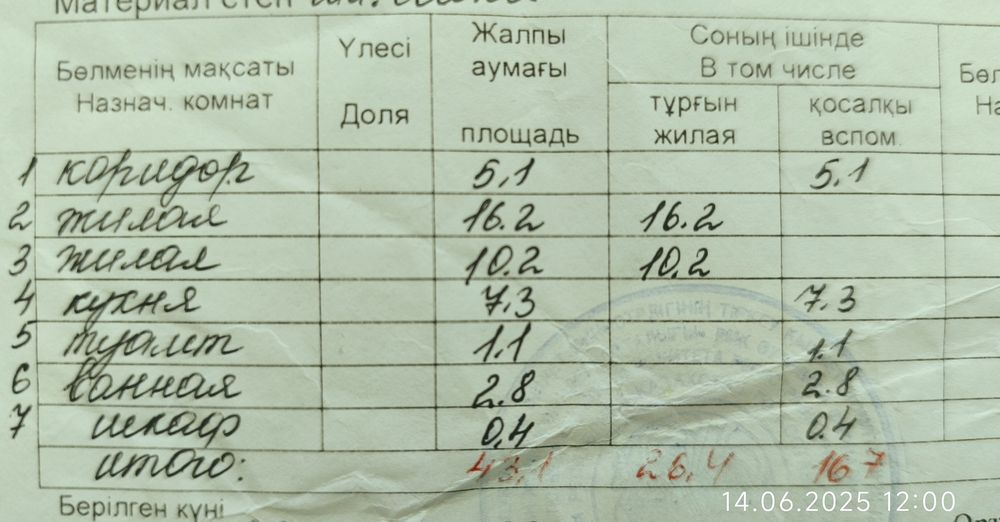 Материал стен
Бөлменің мақсаты Үлесі Жалпы аумағы Соның ішінде
Назнач. комнат Доля площадь В том числе
тұрғын қосалқы
жилая вспом.
1 коридор 5.1 5.1
2 жилая 16.2 16.2
3 жилая 10.2 10.2
4 кухня 7.3 7.3
5 туалет 1.1 1.1
6 ванная 2.8 2.8
7 шкаф 0.4 0.4
итого: 43,1 26.4 16 7
Берілген күні
14.06.2025 12:00